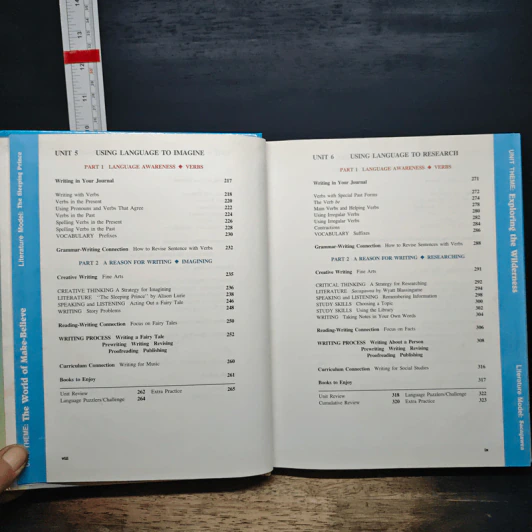 UNIT 5 USING LANGUAGE TO IMAGINE
PART 1 LANGUAGE AWARENESS ★ VERBS
Writing in Your Journal 217
Writing with Verbs 218
Verbs in the Present 220
Using Pronouns and Verbs That Agree 222
Verbs in the Past 224
Spelling Verbs in the Present 226
Spelling Verbs in the Past 228
VOCABULARY Prefixes 230
Grammar-Writing Connection How to Revise Sentences with Verbs 232
PART 2 A REASON FOR WRITING ◆ IMAGINING
Creative Writing Fine Arts 235
CREATIVE THINKING A Strategy for Imagining 236
LITERATURE "The Sleeping Prince" by Alison Lurie 238
SPEAKING and LISTENING Acting Out a Fairy Tale 246
WRITING Story Problems 248
Reading-Writing Connection Focus on Fairy Tales 250
WRITING PROCESS Writing a Fairy Tale 252
Prewriting Writing Revising
Proofreading Publishing
Curriculum Connection Writing for Music 260
Books to Enjoy 261
Unit Review 262 Extra Practice 265
Language Puzzlers/Challenge 264
Literature Model: The Sleeping Prince
THEME: The World of Make-Believe
UNIT 6 USING LANGUAGE TO RESEARCH
PART 1 LANGUAGE AWARENESS ★ VERBS
Writing in Your Journal 271
Verbs with Special Past Forms 272
The Verb be 274
Main Verbs and Helping Verbs 278
Using Irregular Verbs 280
Using Irregular Verbs 282
Contractions 284
VOCABULARY Suffixes 286
Grammar-Writing Connection How to Revise Sentences with Verbs 288
PART 2 A REASON FOR WRITING ◆ RESEARCHING
Creative Writing Fine Arts 291
CRITICAL THINKING A Strategy for Researching 292
LITERATURE Sacagawea by Wyatt Blassingame 294
SPEAKING and LISTENING Remembering Information 298
STUDY SKILLS Choosing a Topic 300
STUDY SKILLS Using the Library 302
WRITING Taking Notes in Your Own Words 304
Reading-Writing Connection Focus on Facts 306
WRITING PROCESS Writing About a Person 308
Prewriting Writing Revising
Proofreading Publishing
Curriculum Connection Writing for Social Studies 316
Books to Enjoy 317
Unit Review 318 Language Puzzlers/Challenge 322
Cumulative Review 320 Extra Practice 323
UNIT THEME: Exploring the Wilderness
Literature Model: Sacagawea